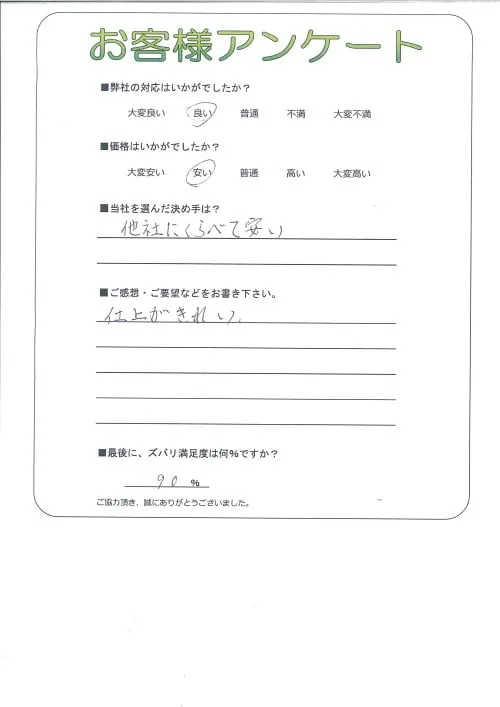 お客様アンケート
■弊社の対応はいかがでしたか？
大変良い 良い 普通 不満 大変不満
■価格はいかがでしたか？
大変安い 安い 普通 高い 大変高い
■当社を選んだ決め手は？
他社にくらべて安い
■ご感想・ご要望などをお書き下さい。
仕上がきれい、
■最後に、ズバリ満足度は何%ですか？
90 %
ご協力頂き、誠にありがとうございました。